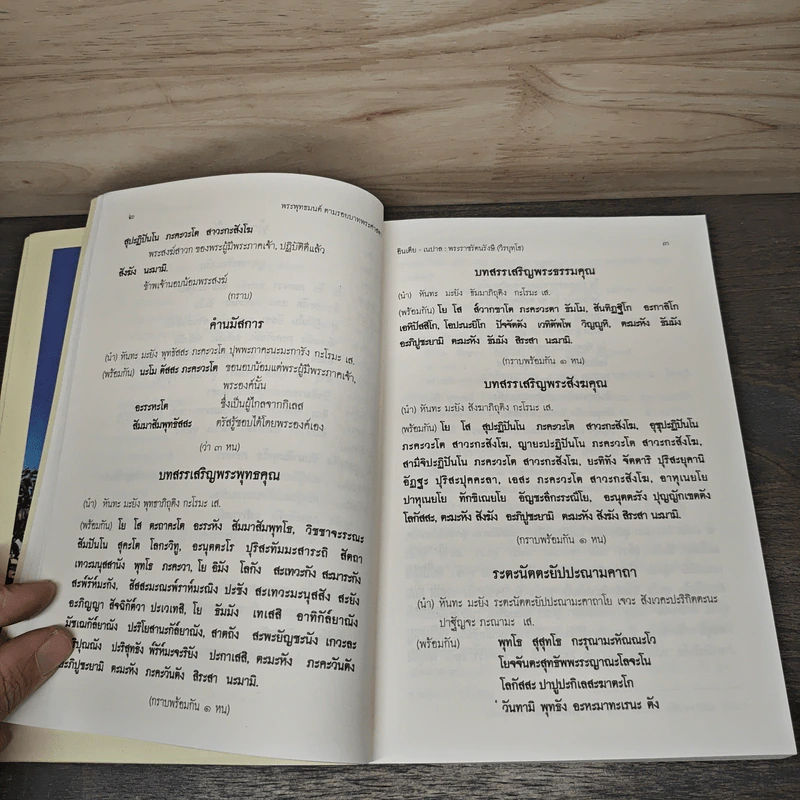 ๒ พระพุทธมนต์ ตามรอยบาทพระศาสดา
สุปะฏิปันโน ภะคะวะโต สาวะกะสังโฆ
พระสงฆ์สาวก ของพระผู้มีพระภาคเจ้า, ปฏิบัติดีแล้ว
สังฆัง นะมามิ.
ข้าพเจ้านอบน้อมพระสงฆ์
(กราบ)
คำนมัสการ
(นำ) หันทะ มะยัง พุทธัสสะ ภะคะวะโต ปุพพะภาคะนะมะการัง กะโรมะ เส.
(พร้อมกัน) นะโม ตัสสะ ภะคะวะโต ขอนอบน้อมแด่พระผู้มีพระภาคเจ้า,
พระองค์นั้น
อะระหะโต ซึ่งเป็นผู้ไกลจากกิเลส
สัมมาสัมพุทธัสสะ ตรัสรู้ชอบได้โดยพระองค์เอง
(ว่า ๓ หน)
บทสรรเสริญพระพุทธคุณ
(นำ) หันทะ มะยัง พุทธาภิถุติง กะโรมะ เส.
(พร้อมกัน) โย โส ตะถาคะโต อะระหัง สัมมาสัมพุทโธ, วิชชาจะระณะ
สัมปันโน สุคะโต โลกะวิทู, อะนุตตะโร ปุริสะทัมมะสาระถิ สัตถา
เทวะมะนุสสานัง พุทโธ ภะคะวา, โย อิมัง โลกัง สะเทวะกัง สะมาระกัง
สะพ๎รัห๎มะกัง, สัสสะมะณะพ๎ราห๎มะณิง ปะชัง สะเทวะมะนุสสัง สะยัง
อะภิญญา สัจฉิกัต๎วา ปะเวเทสิ, โย ธัมมัง เทเสสิ อาทิกัล๎ยาณัง
มัชเฌกัล๎ยาณัง ปะริโยสานะกัล๎ยาณัง, สาตถัง สะพยัญชะนัง เกวะละ
ริปุณณัง ปะริสุทธัง พ๎รัห๎มะจะริยัง ปะกาเสสิ, ตะมะหัง ภะคะวันตัง
ะภิปูชะยามิ ตะมะหัง ภะคะวันตัง สิระสา นะมามิ.
(กราบพร้อมกัน ๑ หน)
อินเดีย - เนปาล : พระราชรัตนรังษี (วีรยุทโธ) ๓
บทสรรเสริญพระธรรมคุณ
(นำ) หันทะ มะยัง ธัมมาภิถุติง กะโรมะ เส.
(พร้อมกัน) โย โส ส๎วากขาโต ภะคะวะตา ธัมโม, สันทิฏฐิโก อะกาลิโก
เอหิปัสสิโก, โอปะนะยิโก ปัจจัตตัง เวทิตัพโพ วิญญูหิ, ตะมะหัง ธัมมัง
อะภิปูชะยามิ ตะมะหัง ธัมมัง สิระสา นะมามิ.
(กราบพร้อมกัน ๑ หน)
บทสรรเสริญพระสังฆคุณ
(นำ) หันทะ มะยัง สังฆาภิถุติง กะโรมะ เส.
(พร้อมกัน) โย โส สุปะฏิปันโน ภะคะวะโต สาวะกะสังโฆ, อุชุปะฏิปันโน
ภะคะวะโต สาวะกะสังโฆ, ญายะปะฏิปันโน ภะคะวะโต สาวะกะสังโฆ,
สามีจิปะฏิปันโน ภะคะวะโต สาวะกะสังโฆ, ยะทิทัง จัตตาริ ปุริสะยุคานิ
อัฏฐะ ปุริสะปุคคะลา, เอสะ ภะคะวะโต สาวะกะสังโฆ, อาหุเนยโย
ปาหุเนยโย ทักขิเณยโย อัญชะลิกะระณีโย, อะนุตตะรัง ปุญญักเขตตัง
โลกัสสะ, ตะมะหัง สังฆัง อะภิปูชะยามิ ตะมะหัง สังฆัง สิระสา นะมามิ.
(กราบพร้อมกัน ๑ หน)
ระตะนัตตะยัปปะณามคาถา
(นำ) หันทะ มะยัง ระตะนัตตะยัปปะณามะคาถาโย เจวะ สังเวคะปะริกิตตะนะ
ปาฐัญจะ ภะณามะ เส.
(พร้อมกัน) พุทโธ สุสุทโธ กะรุณามะหัณณะโว
โยจจันตะสุทธัพพะระญาณะโลจะโน
โลกัสสะ ปาปูปะกิเลสะฆาตะโก
วันทามิ พุทธัง อะหะมาทะเรนะ ตัง